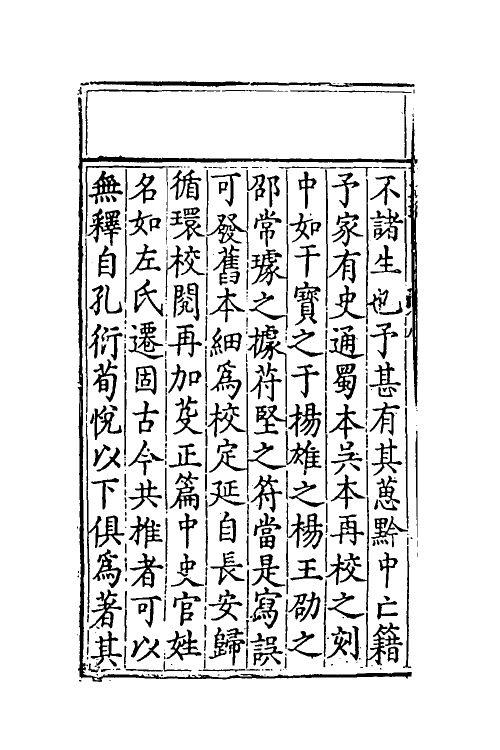 不諸生也予甚有其蔥黔中亡籍
予家有史通蜀本吳本再校之刻
中如干寶之于楊雄之楊王劭之
邵常璩之據苻堅之符當是寫誤
可發舊本細爲校定延自長安歸
循環校閱再加芟正篇中史官姓
名如左氏遷固古今共推者可以
無釋自孔衍荀悅以下俱爲著其